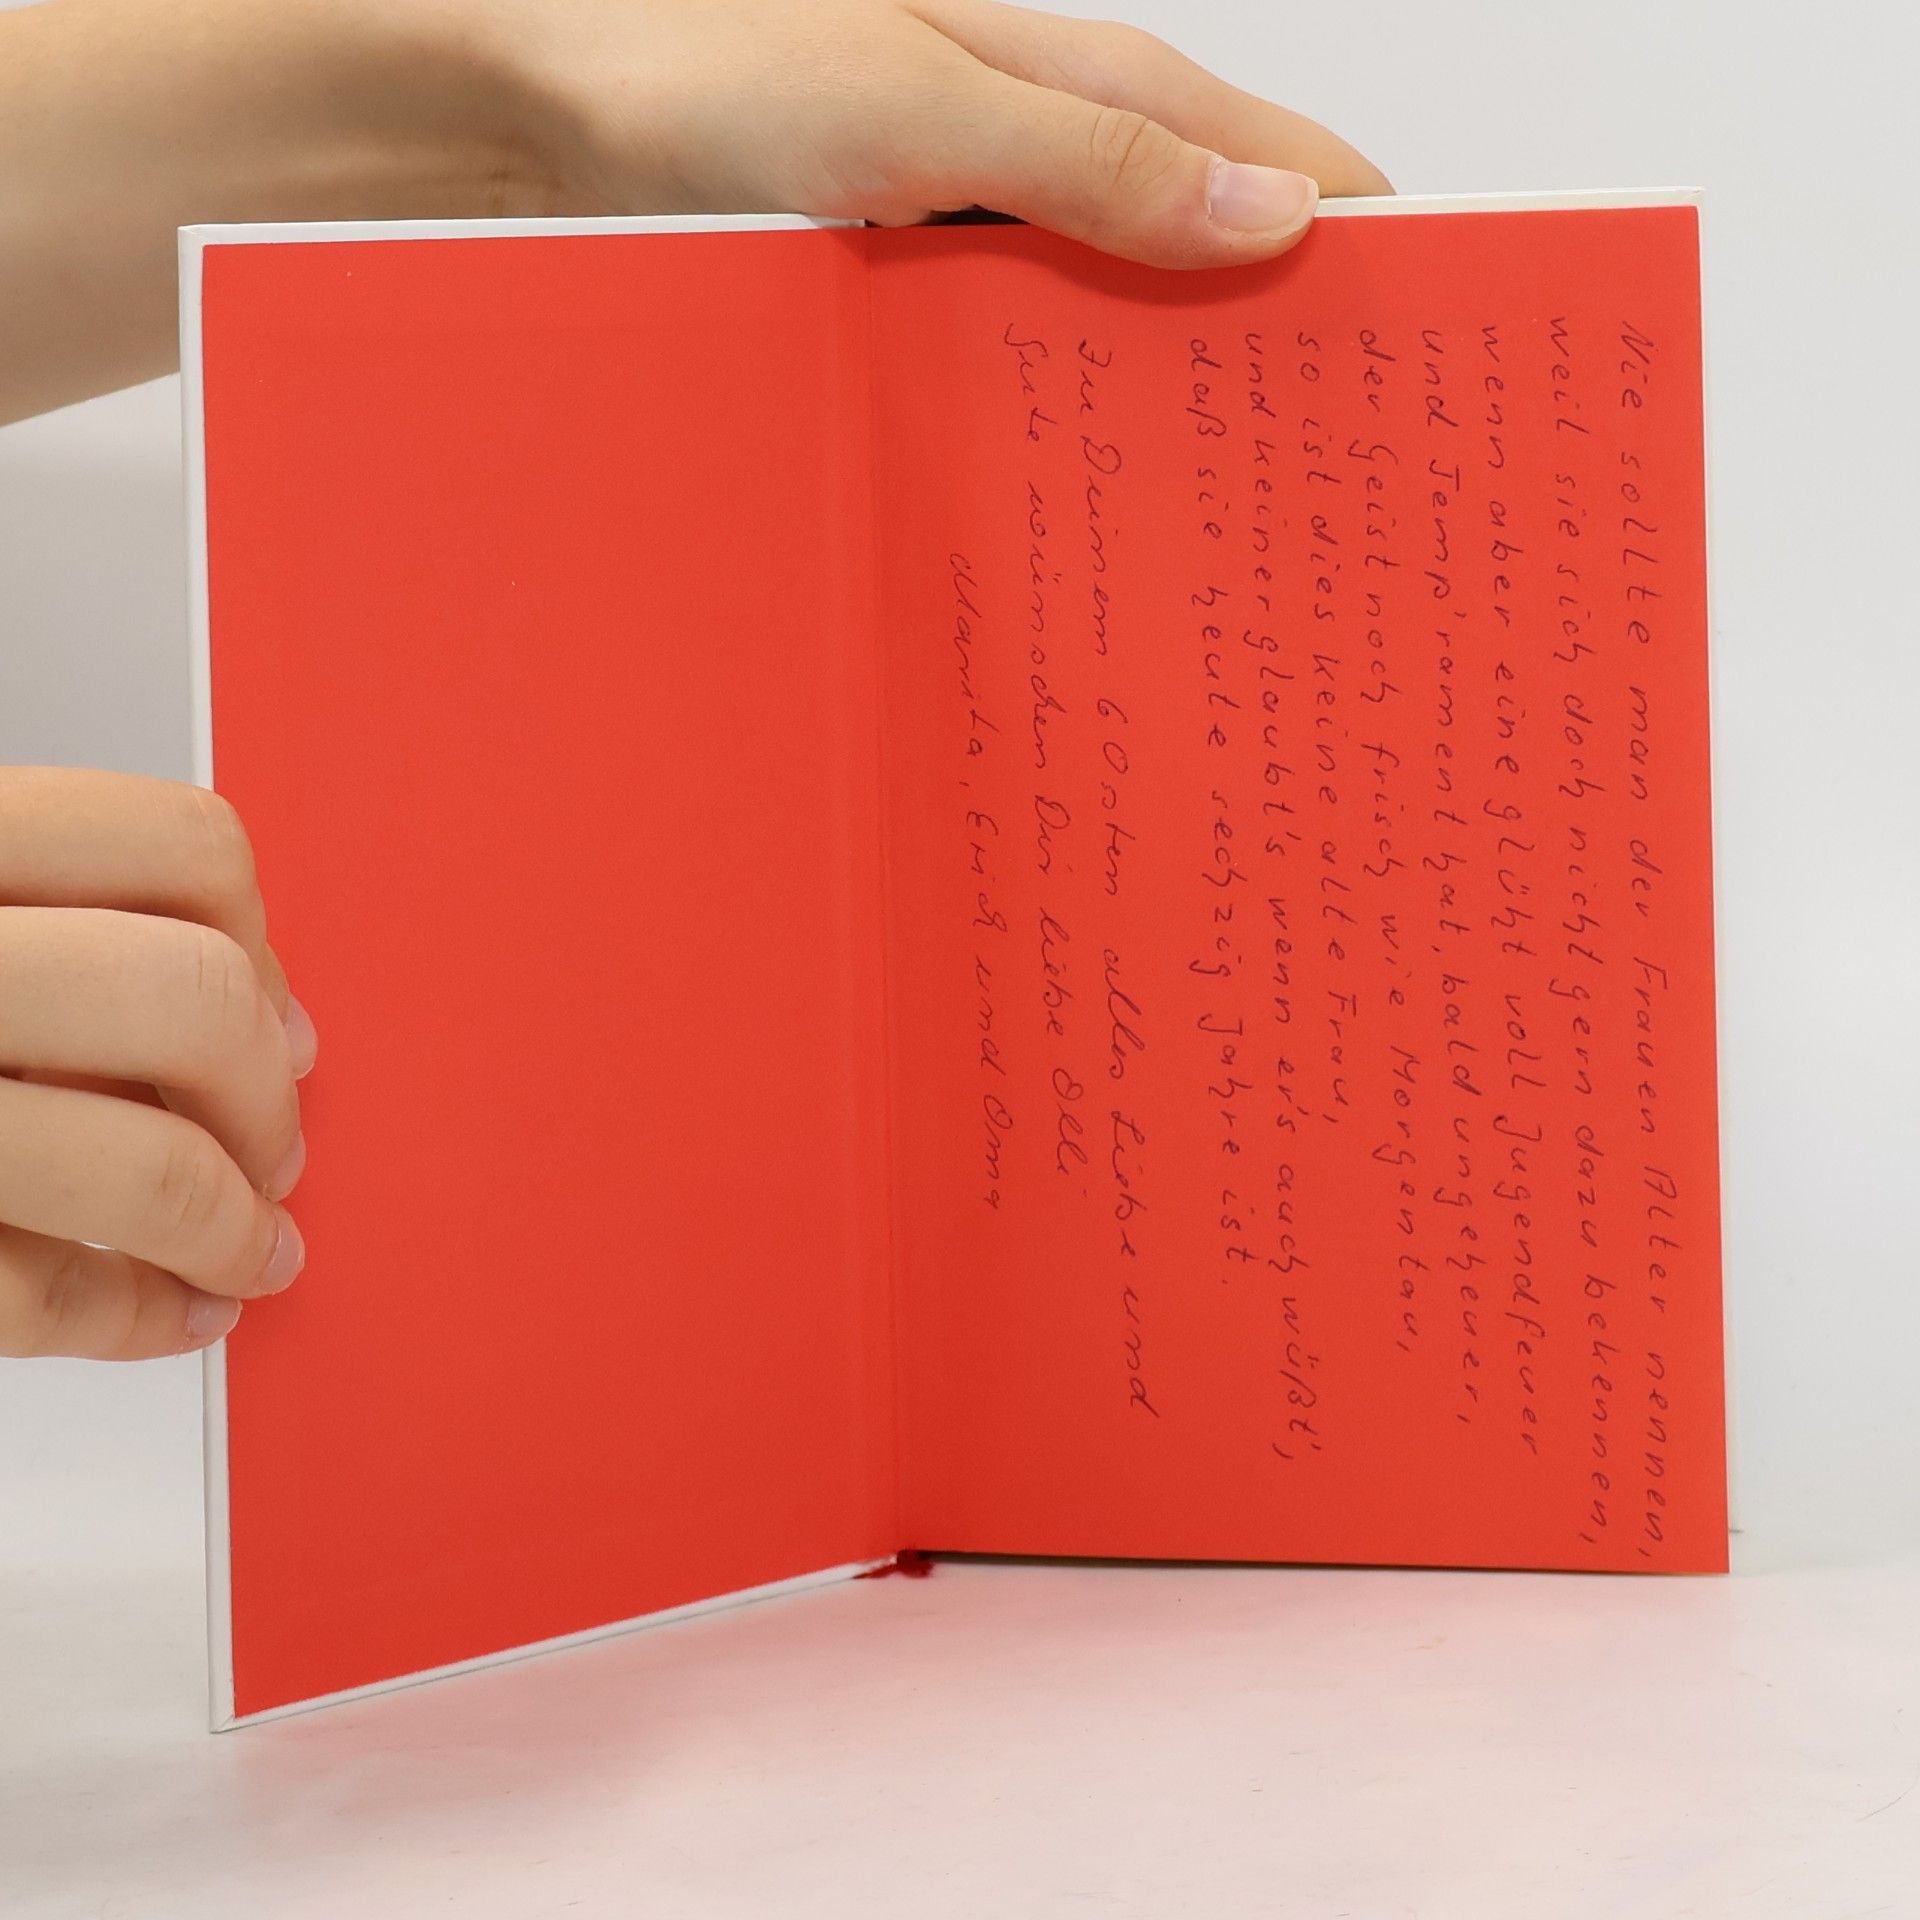 Nie sollte man der Frauen Alter nennen,
weil sie sich doch nicht gern dazu bekennen,
wenn aber eine glüht voll Jugendfeuer
und Temp'rament hat, bald ungeheuer,
der Geist noch frisch wie Morgentau,
so ist dies keine alte Frau,
und keiner glaubt's wenn er's auch wüßt',
daß sie heute sechzig Jahre ist.
Zu Deinem 60sten alles Liebe und
Gute wünschen Dir liebe Olli
Marita, Erich und Oma